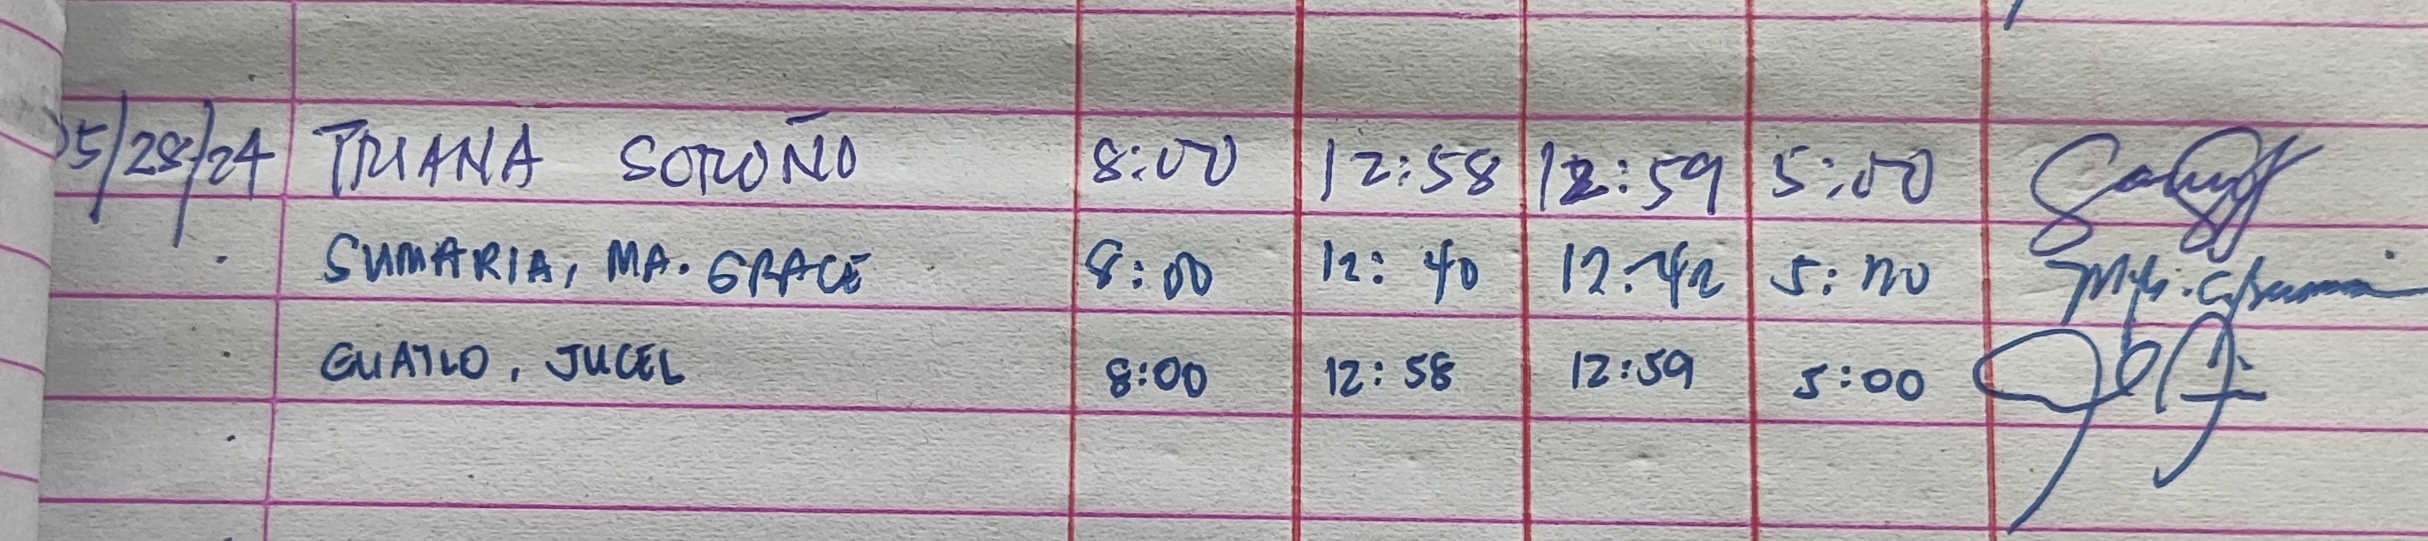 05/28/24 TRIANA SOROÑO 8:00 12:58 12:59 5:00
SUMARIA, MA. GRACE 8:00 12:40 12:42 5:00
GUATLO, JUCEL 8:00 12:58 12:59 5:00